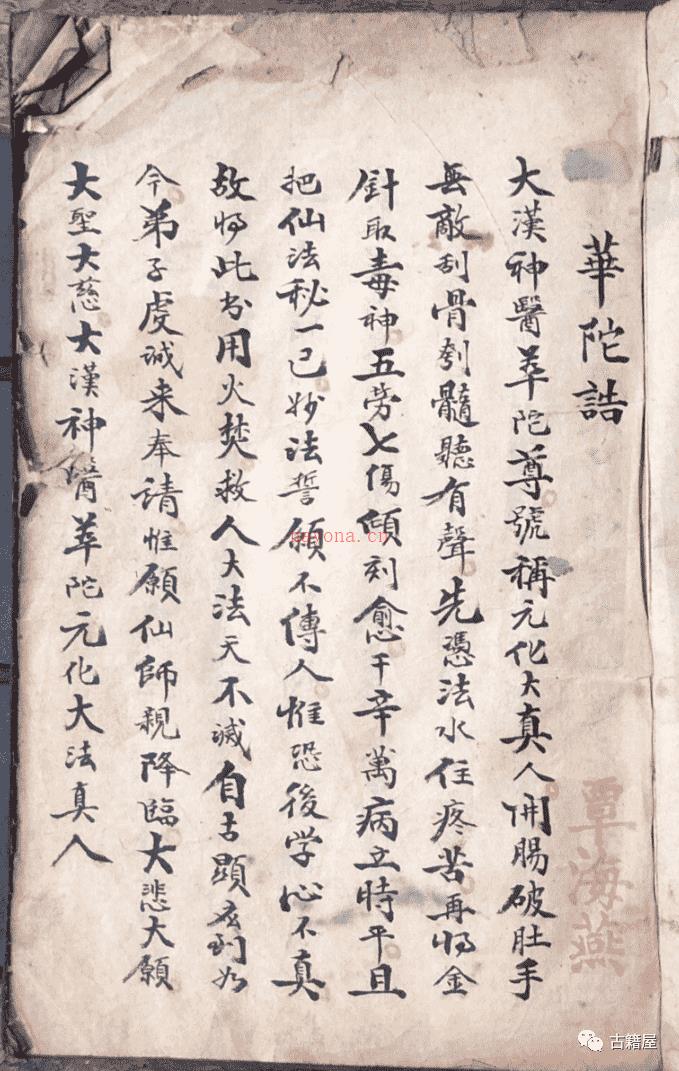 華陀誥
大漢神醫華陀尊號稱元化大真人開腸破肚手
無敵刮骨刳髓聽有聲先憑法水住疼苦再將金
針取毒神五劳七傷傾刻愈千辛萬病立時平且
把仙法秘一已妙法誓願不傳人惟恐後学心不真
故將此书用火焚救人大法天不滅自古顯玄到如
今弟子虔诚来奉請惟願仙師親降臨大悲大願
大聖大慈大漢神醫華陀元化大法真人
覃海燕
nayona.cn
古籍屋